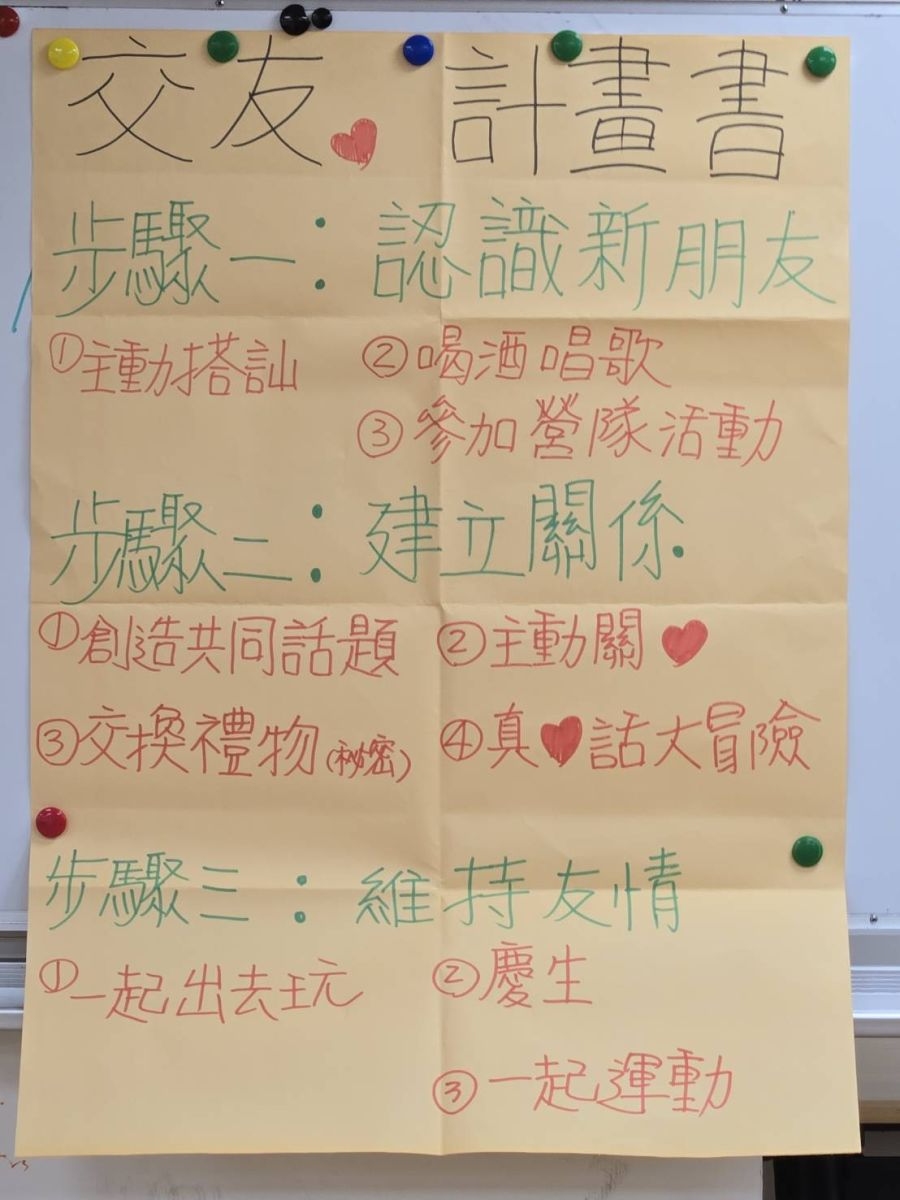 交友 計畫書
步驟一：認識新朋友
①主動搭訕 ②喝酒唱歌
③參加營隊活動
步驟二：建立關係
①創造共同話題 ②主動關
③交換禮物(秘密) ④真話大冒險
步驟三：維持友情
①一起出去玩 ②慶生
③一起運動